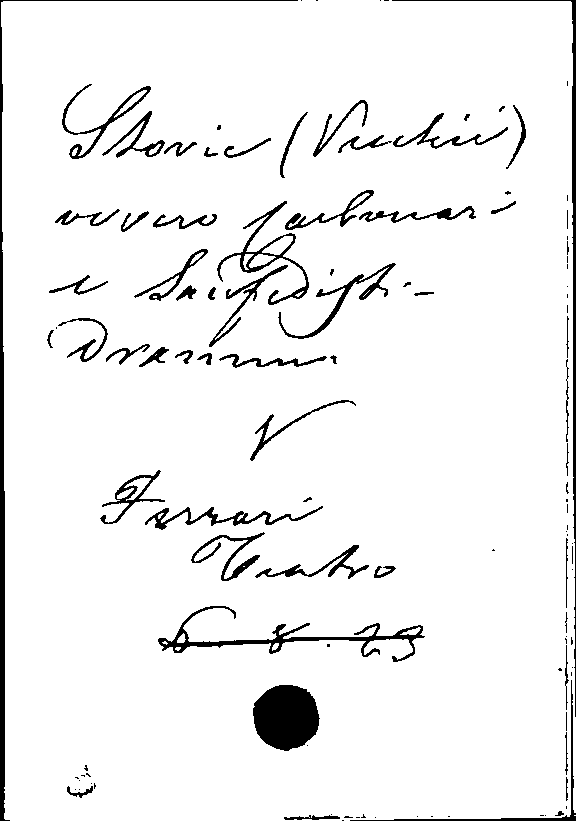 Storie (Vecchie)
ovvero Carbonari
e Sanfedisti -
Dramma
V
Ferrari
Teatro
6. 8. 23